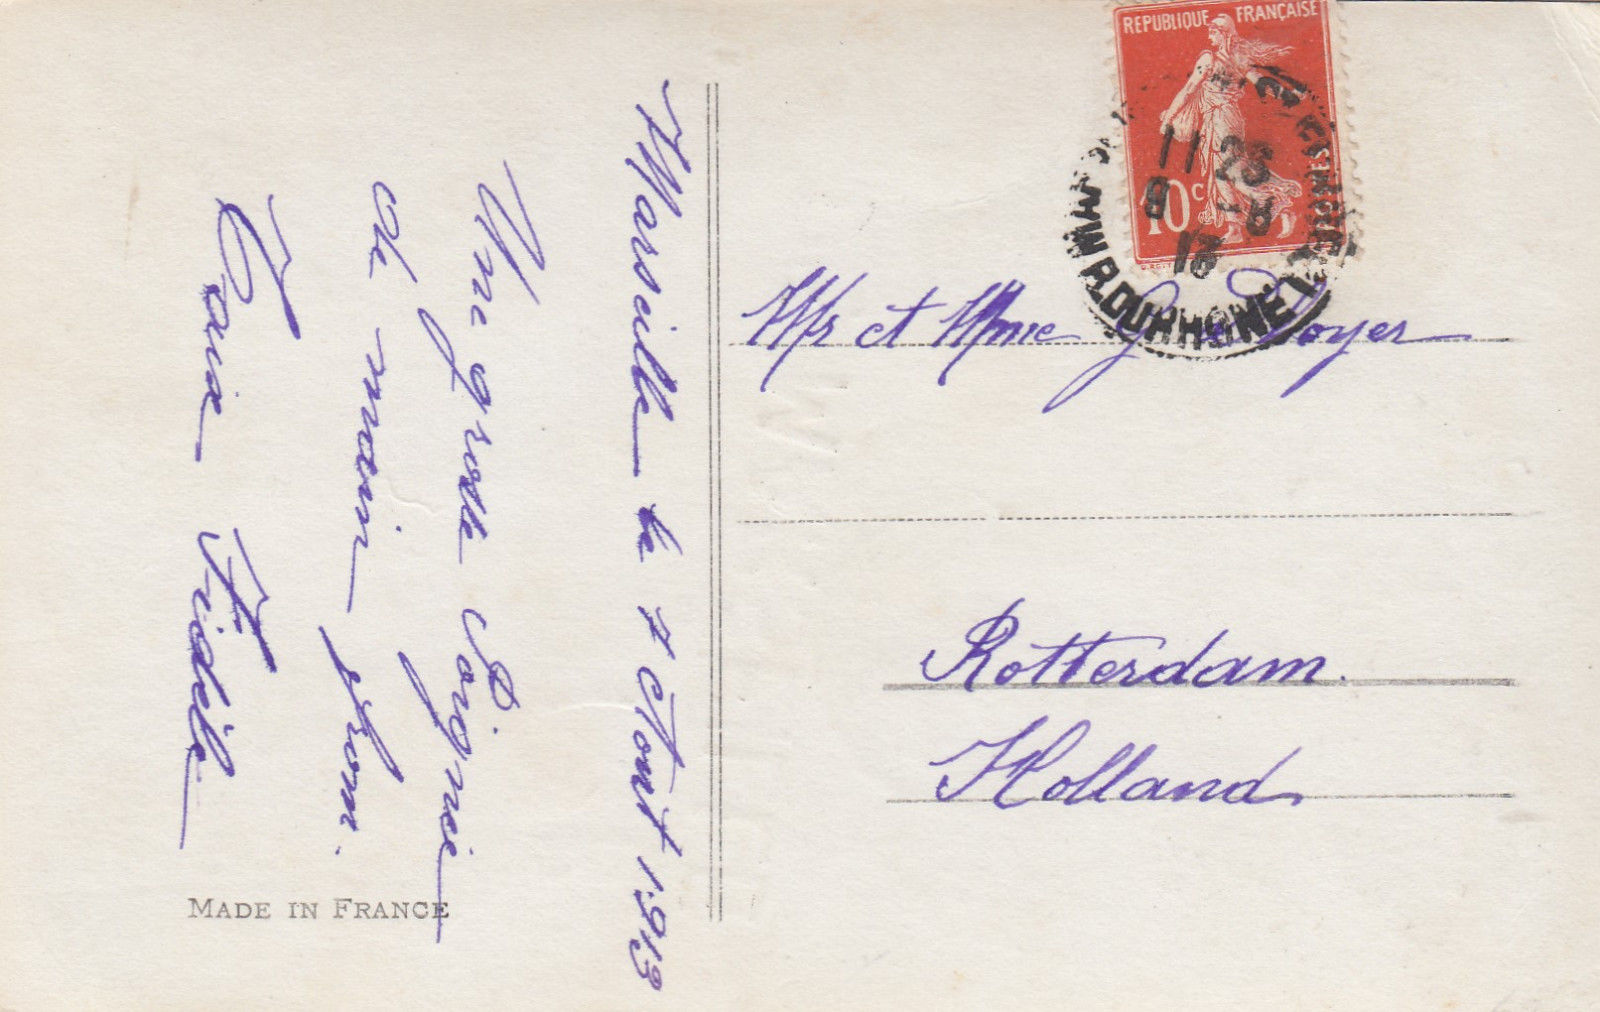 Marseille le 7 Aout 1.913
Une grosse Poignée
de main from.
Fidèle
MADE IN FRANCE
REPUBLIQUE FRANÇAISE
10 c
11 25
8 -8
13
B. DU RHONE
Mr et Mme J. Doyer
Rotterdam.
Holland